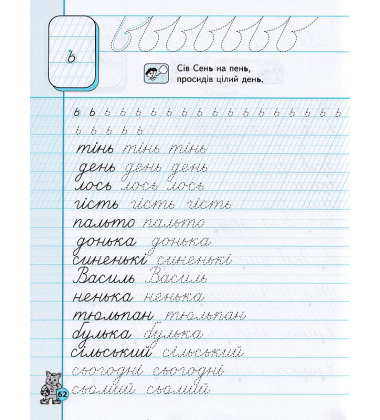 ь
ь ь ь ь ь ь ь
Сів Сень на пень,
просидів цілий день.
ь ь ь ь ь ь ь ь ь ь ь ь ь ь ь ь ь ь
ь ь ь ь ь
тінь тінь тінь
день день день
лось лось лось
гість гість гість
пальто пальто
донька донька
синенькі синенькі
Василь Василь
ненька ненька
тюльпан тюльпан
булька булька
сільський сільський
сьогодні сьогодні
сьомий сьомий
62